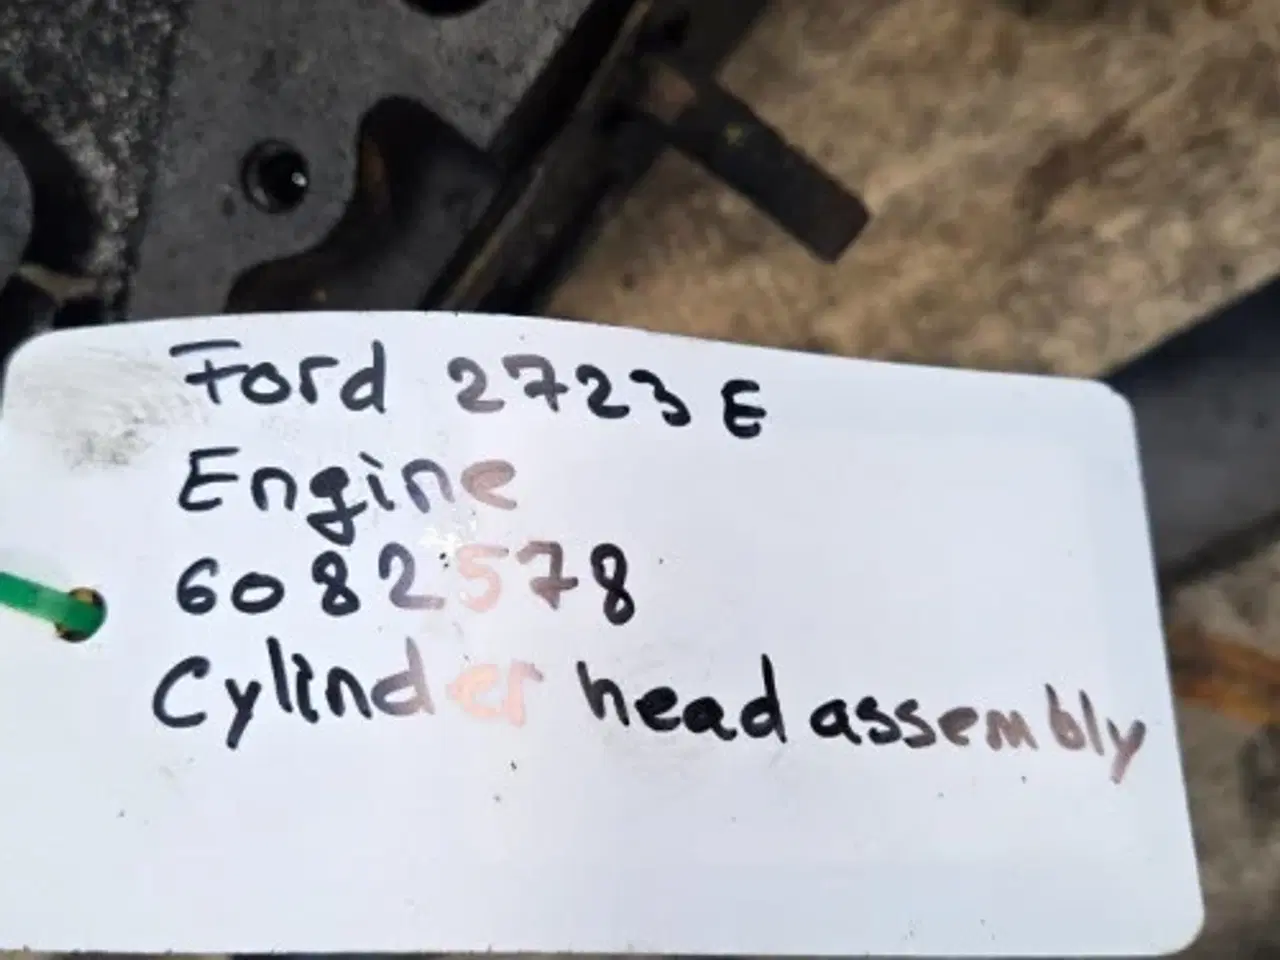 Ford 2723E
Engine
6082578
Cylinder head assembly